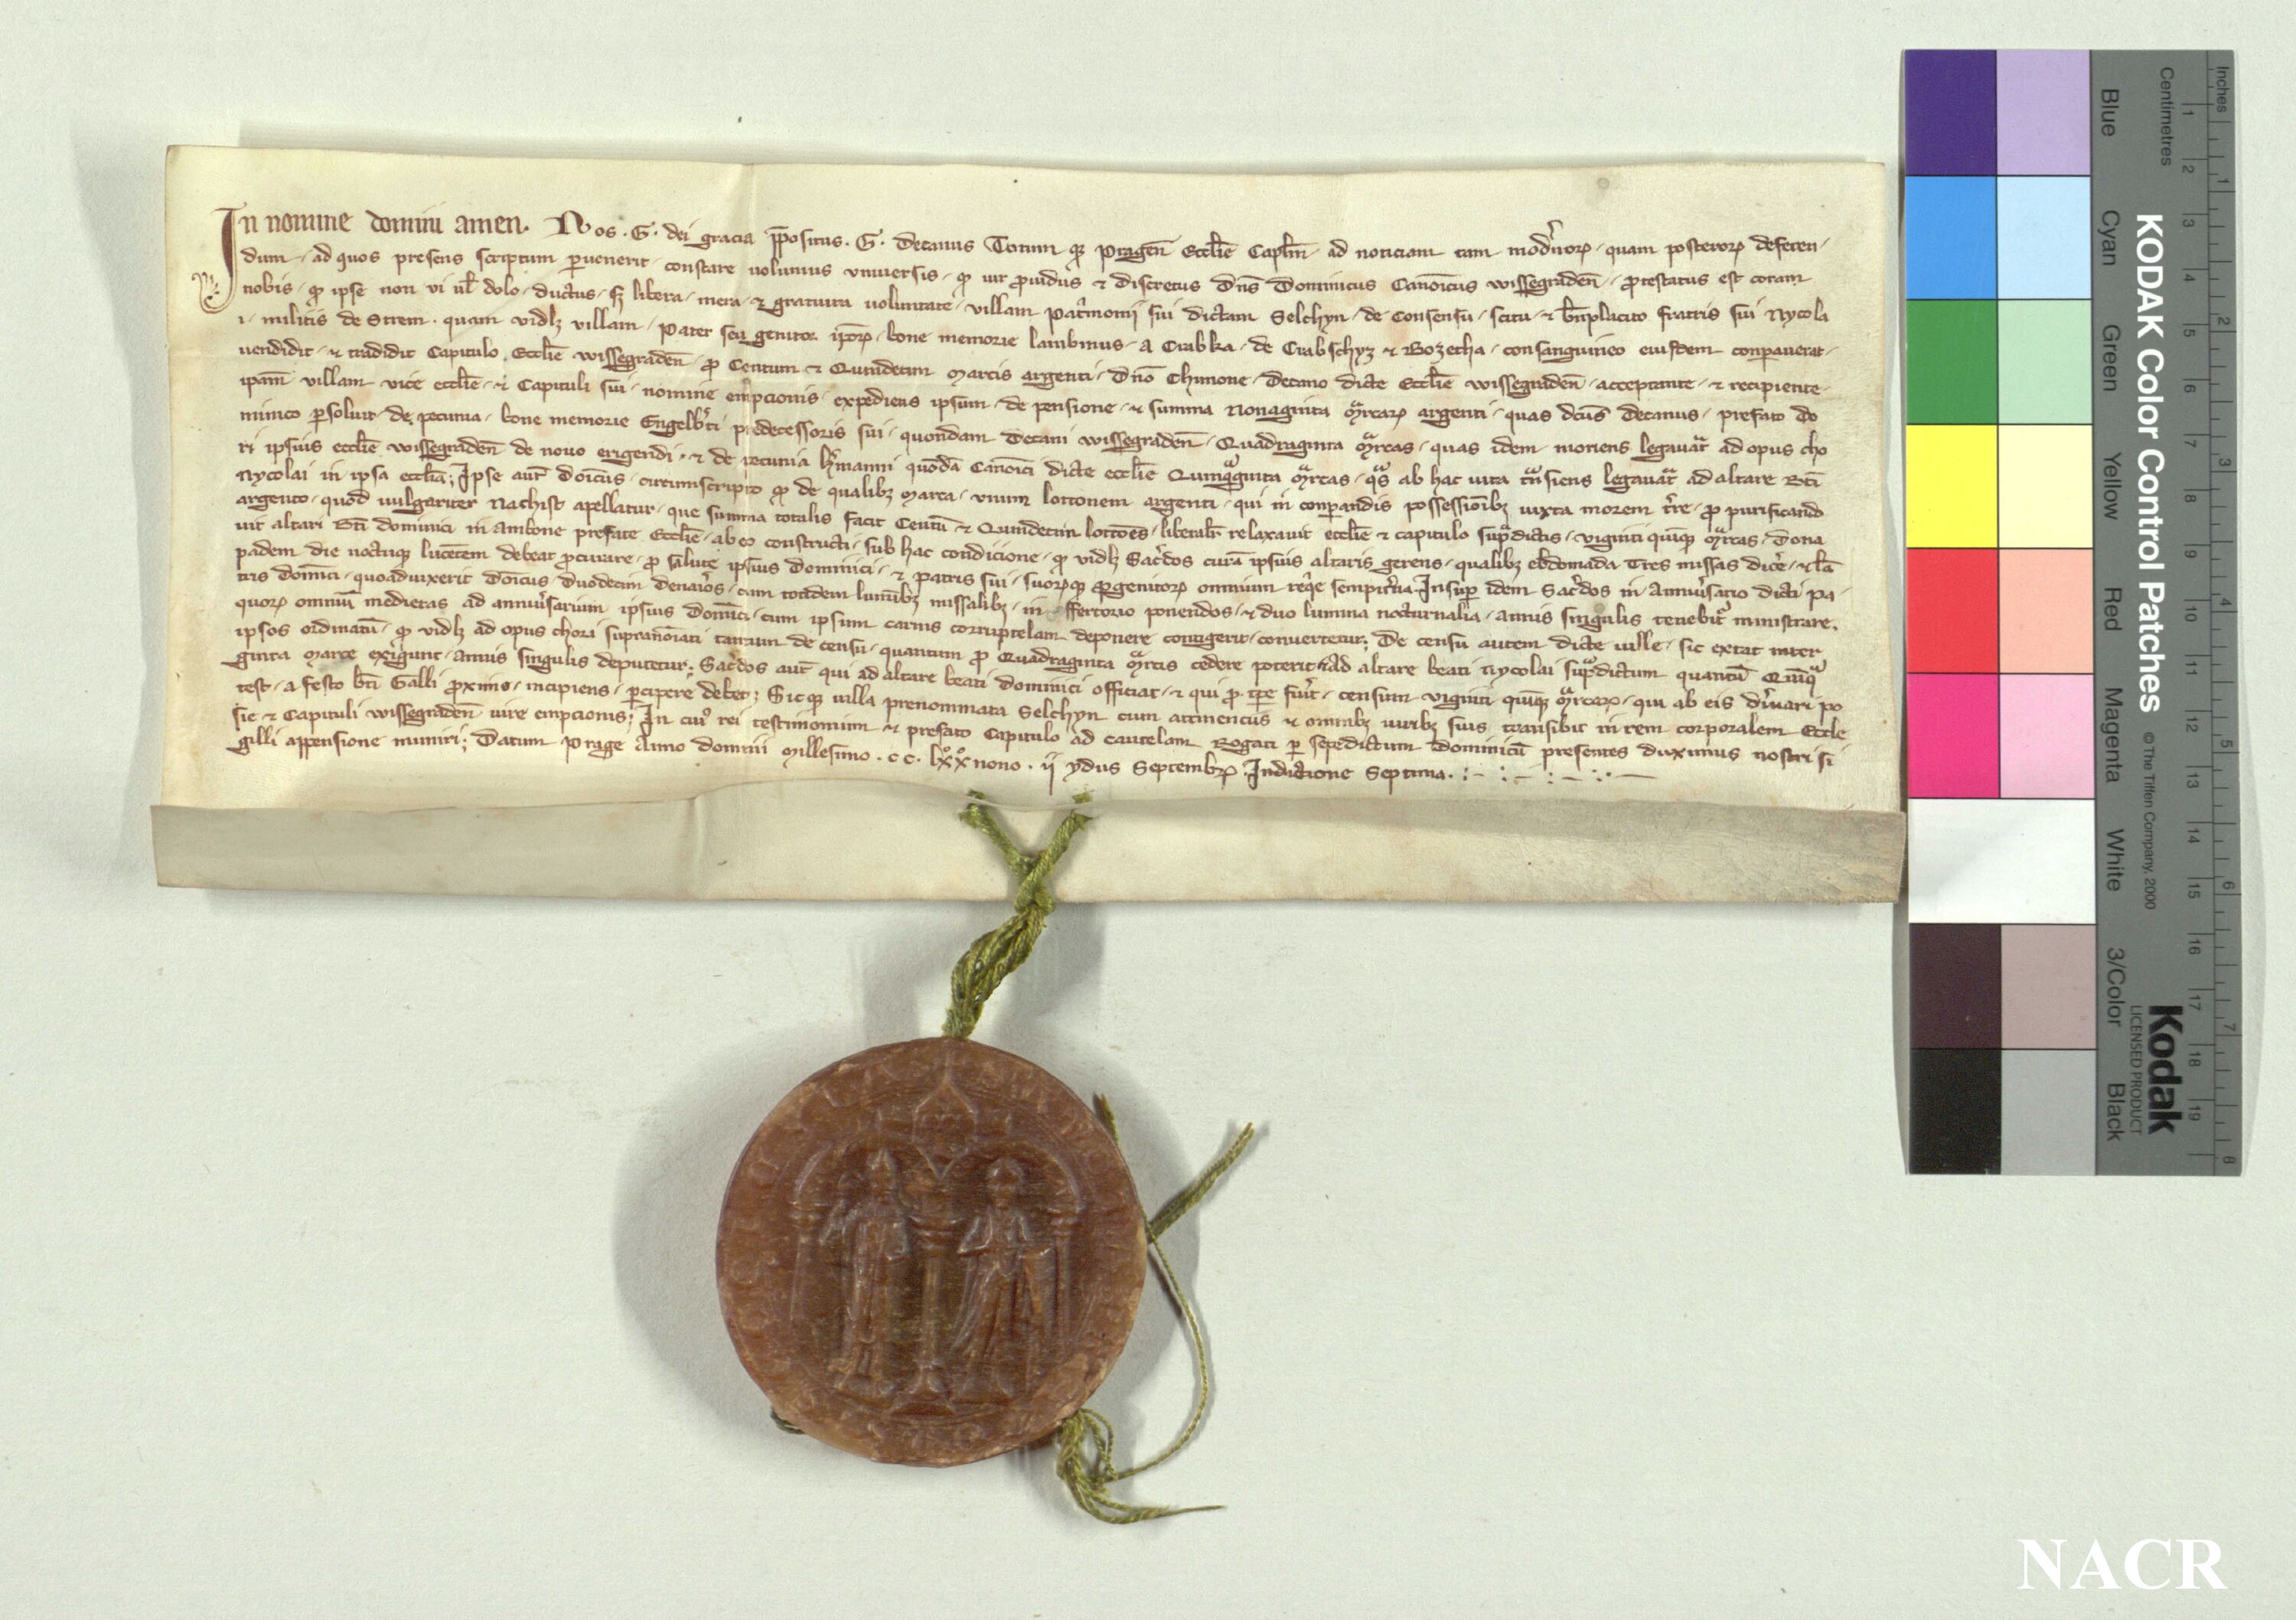 In nomine domini amen. Nos . G . dei gracia p̄positus . G . Decanus Totum qꝫ Pragen̄ Eccl̄ie Capl̄m ad noticiam tam mod̓noꝝ quam posteroꝝ deferen
dum ad quos presens scriptum ꝑuenerit constare uolumus vniuersis ꝙ uir ꝓuidus ⁊ discretus Dn̄s Dominicus Canoīcus wissegraden̄ ꝓtestatus est coram
nobis ꝙ ipse non ui ul̄ dolo ductus sꝫ libera mera ⁊ gratuita uoluntate villam pat̓monij sui dictam Selchyn de Consensu scitu ⁊ bn̄placito fratris sui Nycola
i militis de Strem quam vidlꝫ villam Pater seu genitor ip̄oꝝ bone memorie lambinus a Crabka de Crabschyz ⁊ Bozecha consanguineo eiusdem conparauerat
uendidit ⁊ tradidit Capitulo Eccl̄ie wissegraden̄ ꝓ Centum ⁊ Quindecim Marcis argenti dn̄o Chunone Decano dicte Eccl̄ie wissegraden̄ acceptante ⁊ recipiente
ip̄am villam vice eccl̄ie ⁊ Capituli sui nomine empcionis expediens ipsum de pensione ⁊ summa Nonaginta Marcaꝝ argenti quas dc̄us Decanus prefato do
minico ꝑsoluit de pecunia bone memorie Engelb̓ti predecessoris sui quondam Decani wissegraden̄ Quadraginta Marcas quas idem moriens legauat ad opus cho
ri ipsius eccl̄ie wissegraden̄ de nouo erigendi ⁊ de pecunia h̓manni quodā Canoīci dicte eccl̄ie Quinq̈ginta Marcas q̈s ab hac uita ẗnsiens legauat ad altare Bt̄i
Nycolai in ipsa eccl̄ia; Ipse aut̄ doīcus circumscripto ꝙ de qualibꝫ Marca vnum lottonem argenti qui in conparandis possessioībꝫ iuxta morem t̓re ꝓ purificand
argento quod uulgariter Nachist apellatur que summa totalis facit Centū ⁊ Quindecim lottoēs liberalr̄ relaxauit eccl̄ie ⁊ capitulo sup̈dictis viginti quīqꝫ Marcas dona
uit altari Bt̄i dominici in Ambone prefate Eccl̄ie ab eo constructi sub hac condicione ꝙ vidlꝫ Sac̓dos curā ipsius altaris gerens qualibꝫ ebdomada Tres missas dic̓e ⁊ lā
padem die noctuqꝫ lucētem debeat ꝓcurare ꝓ salute ipsius dominici ⁊ Patris sui suoꝝqꝫ ꝓgenitoꝝ omnium req̓e sempit̓na. Insuꝑ idem Sac̓dos in Anniu̓sario dicti pa
tris domīci quoaduixerit doīcus duodecim denar̓os cum totidem lumībꝫ missalibꝫ in offertorio ponendos ⁊ duo lumina nocturnalia annis singulis tenebit̓ ministrare.
quoꝝ omniū medietas ad anniu̓sarium ipsius domīci cum ipsum carnis corruptelam deponere contigerit conuertetur; De censu autem dicte uille sic extat inter
ipsos ordinatū ꝙ vidlꝫ ad opus chori supranoīati tantum de censu quantum ꝓ Quadraginta Marcis cedere poterit ⁊ ad altare beati Nycolai sup̈dictum quantū Quīq̈
ginta Marce exigunt annis singulis deputetur; Sac̓dos aut̄ qui ad altare beati dominici officiat ⁊ qui ꝓ tp̄e fu̓it censum viginti quīqꝫ Marcaꝝ qui ab eis d̓iuari po
test a festo bt̄i Galli ꝓximo incipiens ꝑcipere debet; Sicqꝫ uilla prenominata Selchyn cum attinenciis ⁊ omnibꝫ iuribꝫ suis transibit in rem corporalem Eccle
sie ⁊ Capituli wissegraden̄ iure empcionis; In cui᷒ rei testimonium ⁊ prefato Capitulo ad cautelam Rogati ꝑ sepedictum dominicū presentes duximus nostri si
gilli appensione muniri; Datum Prage Anno domini Millesimo . cc . lxx̊ nono . ij ydus Septembꝝ Indictione Septima .
KODAK Color Control Patches
© The Tiffen Company, 2000
Kodak
LICENSED PRODUCT
Inches
Centimetres
1 2 3 4 5 6 7 8 9 10 11 12 13 14 15 16 17 18 19
1 2 3 4 5 6 7 8
Blue
Cyan
Green
Yellow
Red
Magenta
White
3/Color
Black
NACR